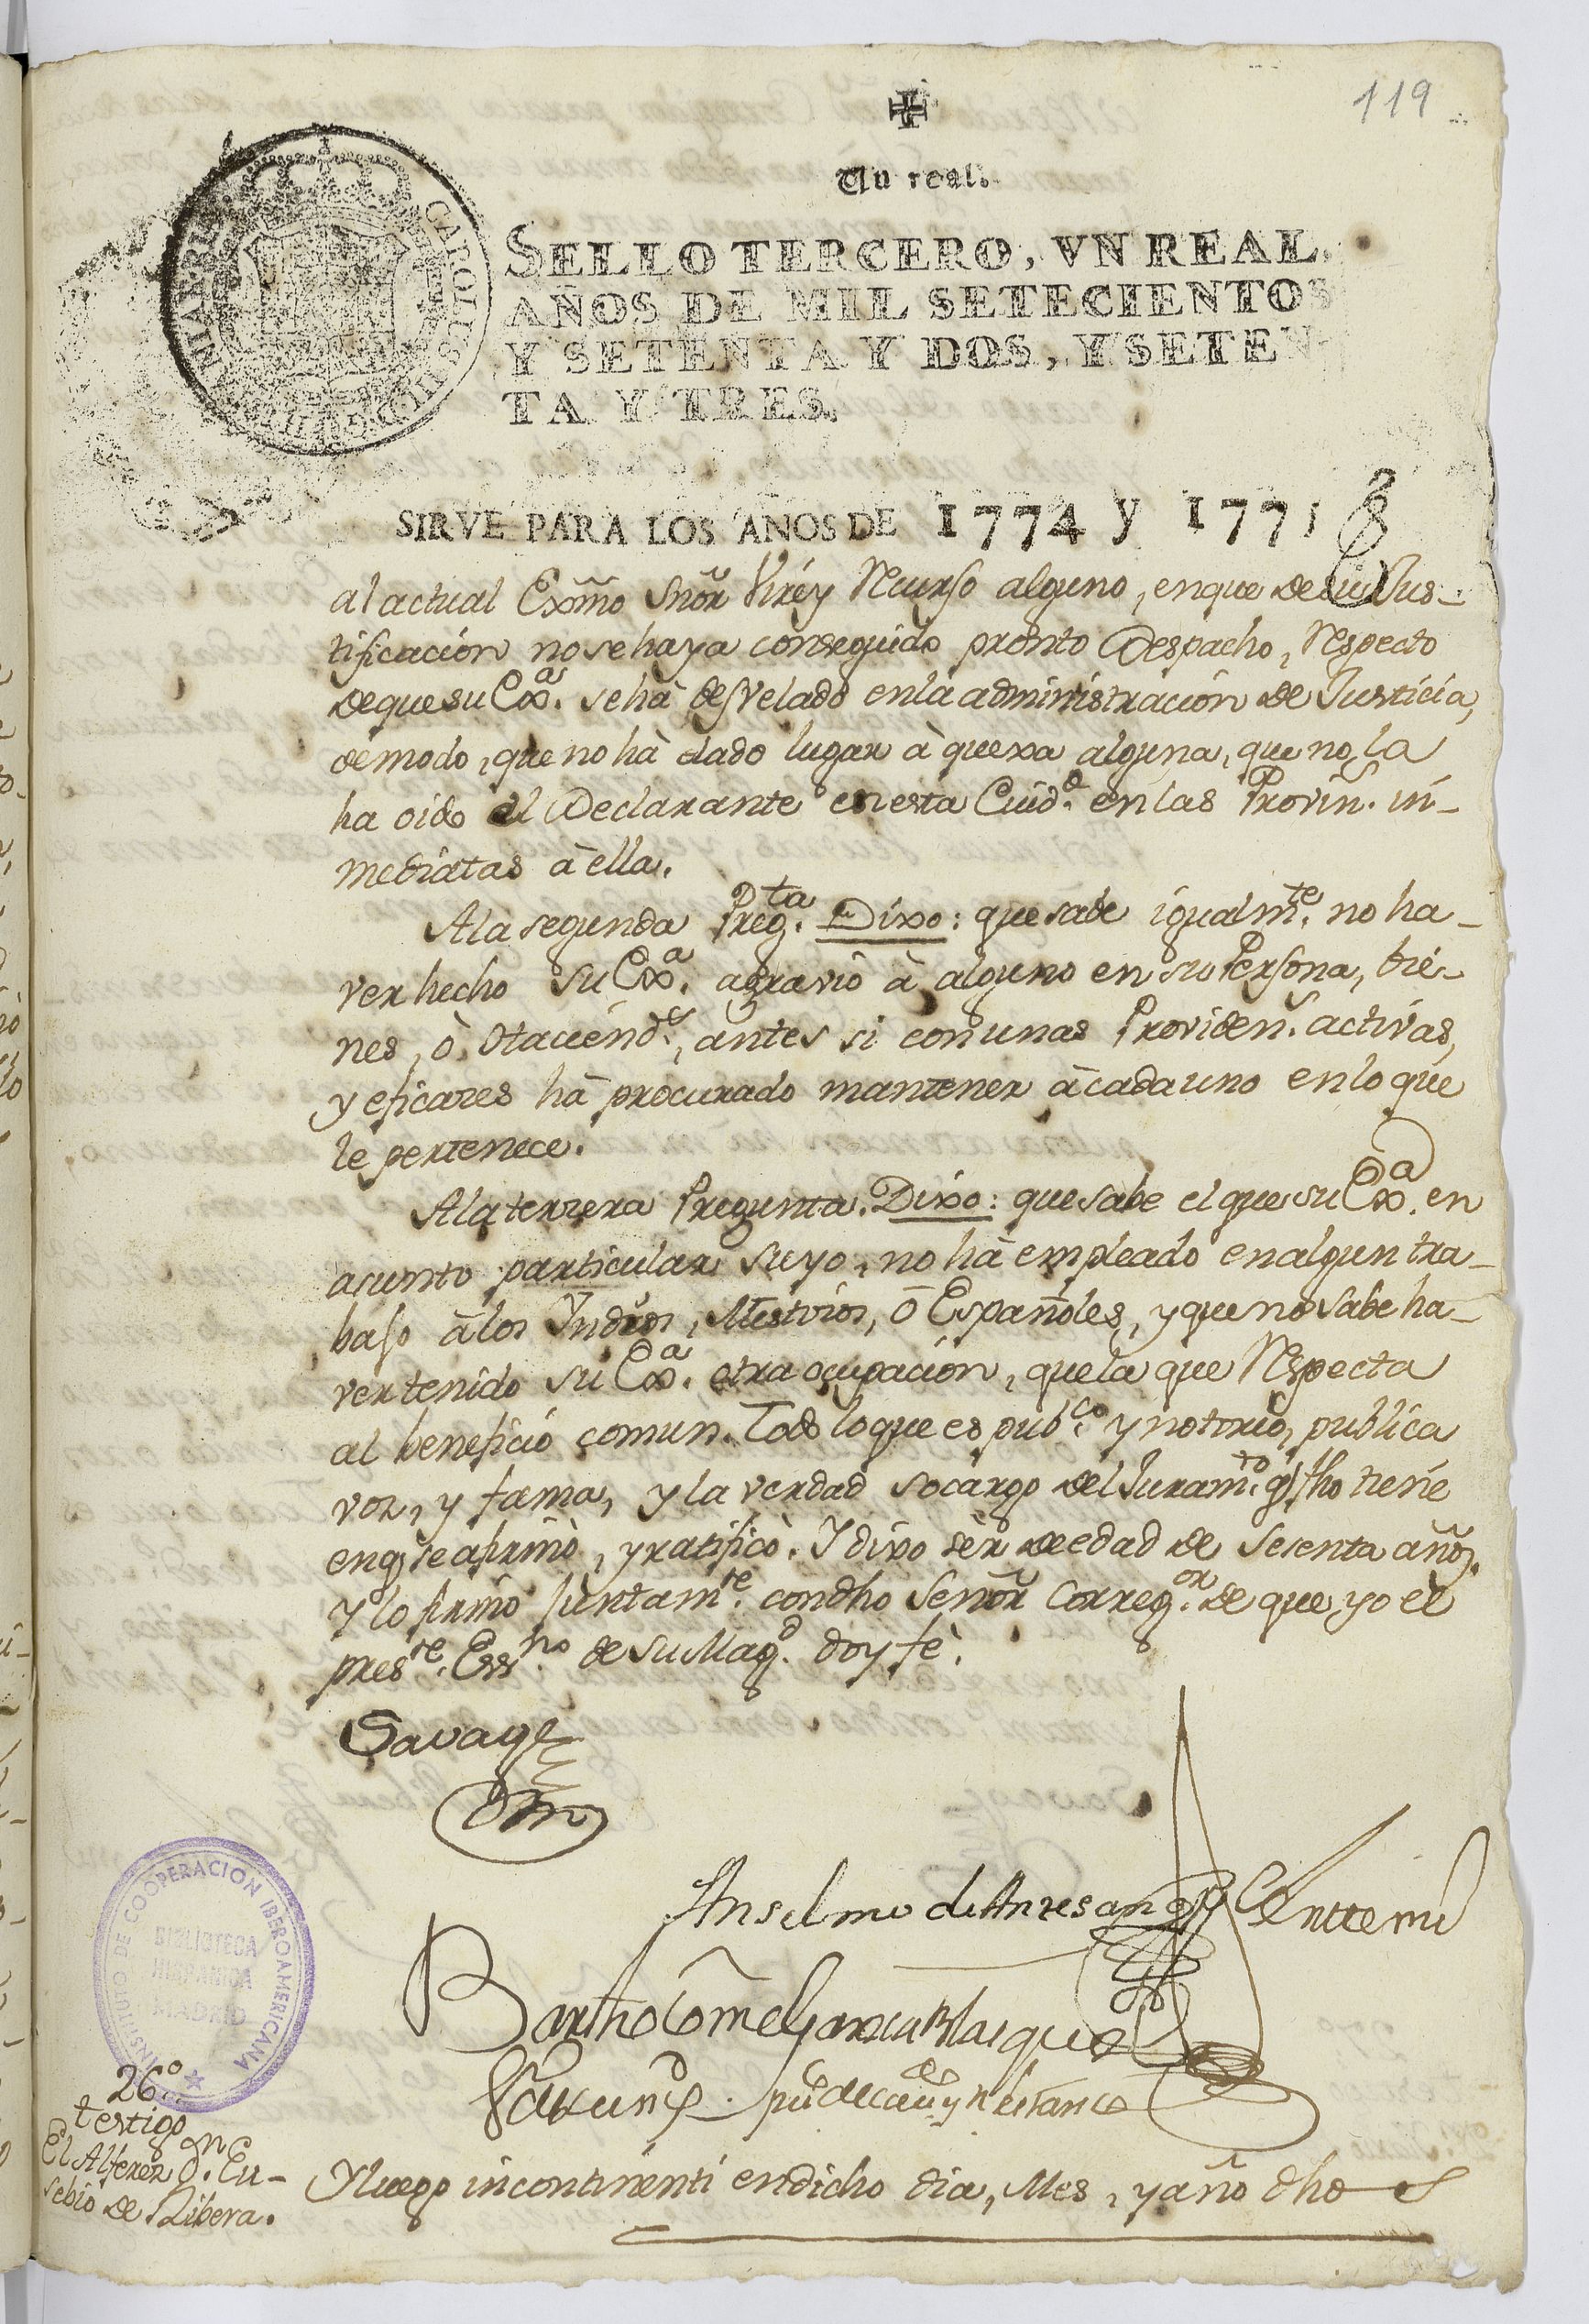 119
Un real.
SELLO TERCERO, VN REAL,
AÑOS DE MIL SETECIENTOS
Y SETENTA Y DOS, Y SETEN-
TA Y TRES.
SIRVE PARA LOS AÑOS DE 1774 y 1775
al actual Exmõ Snõr Virèy Recurso alguno, enque de su Jus-
tificaciòn nosehaya conseguido pronto Despacho, Respecto
deque su Exª. sehà desvelado enla administraciòn de Justicia,
demodo, que no hà dado lugar à quexa alguna, que no la
ha oido el Declarante en esta Ciudᵈ. en las Provinˢ. in-
mediatas à ella.
Ala segunda Pregᵗᵃ. Dixo: que sabe igualmᵗᵉ. no ha-
ver hecho su Exª. agravio à alguno en su Persona, bie-
nes, ò Haciendˢ, antes si con unas Providenˢ. activas,
y eficazes hà procurado mantener à cada uno en lo que
le pertenece.
Ala terzera Pregunta. Dixo: que sabe el que su Exª. en
asunto particular suyo, no hà empleado en algun tra-
bajo à los Yndios, Mestizos, ò Españoles, y que no sabe ha-
ver tenido su Exª. otra ocupaciòn, que la que Respecta
al beneficio comun. Todo lo que es pubᶜᵒ. y notorio, publica
voz, y fama, y la verdad socargo del Juramᵗᵒ. q̃ fho tiene
enq̃ se afirmò, y ratificò. Y dixo sèr de edad de sesenta añoˢ.
y lo firmò juntamᵗᵉ. con dho Señor Corregᵒʳ. de que yo el
presᵗᵉ. Essⁿᵒ de su Magᵈ. doy fè.
Savage
Anselmo de Anzesangoy Antte mi
Bartholomẽ Garcia Blasques
INSTITUTO DE COOPERACION IBEROAMERICANA
BIBLIOTECA
HISPANICA
MADRID
26.º
testigo
El Alferez Dⁿ. Eu-
sebio de Ribera.
Y luego incontinenti en dicho dia, Mes, y año dho